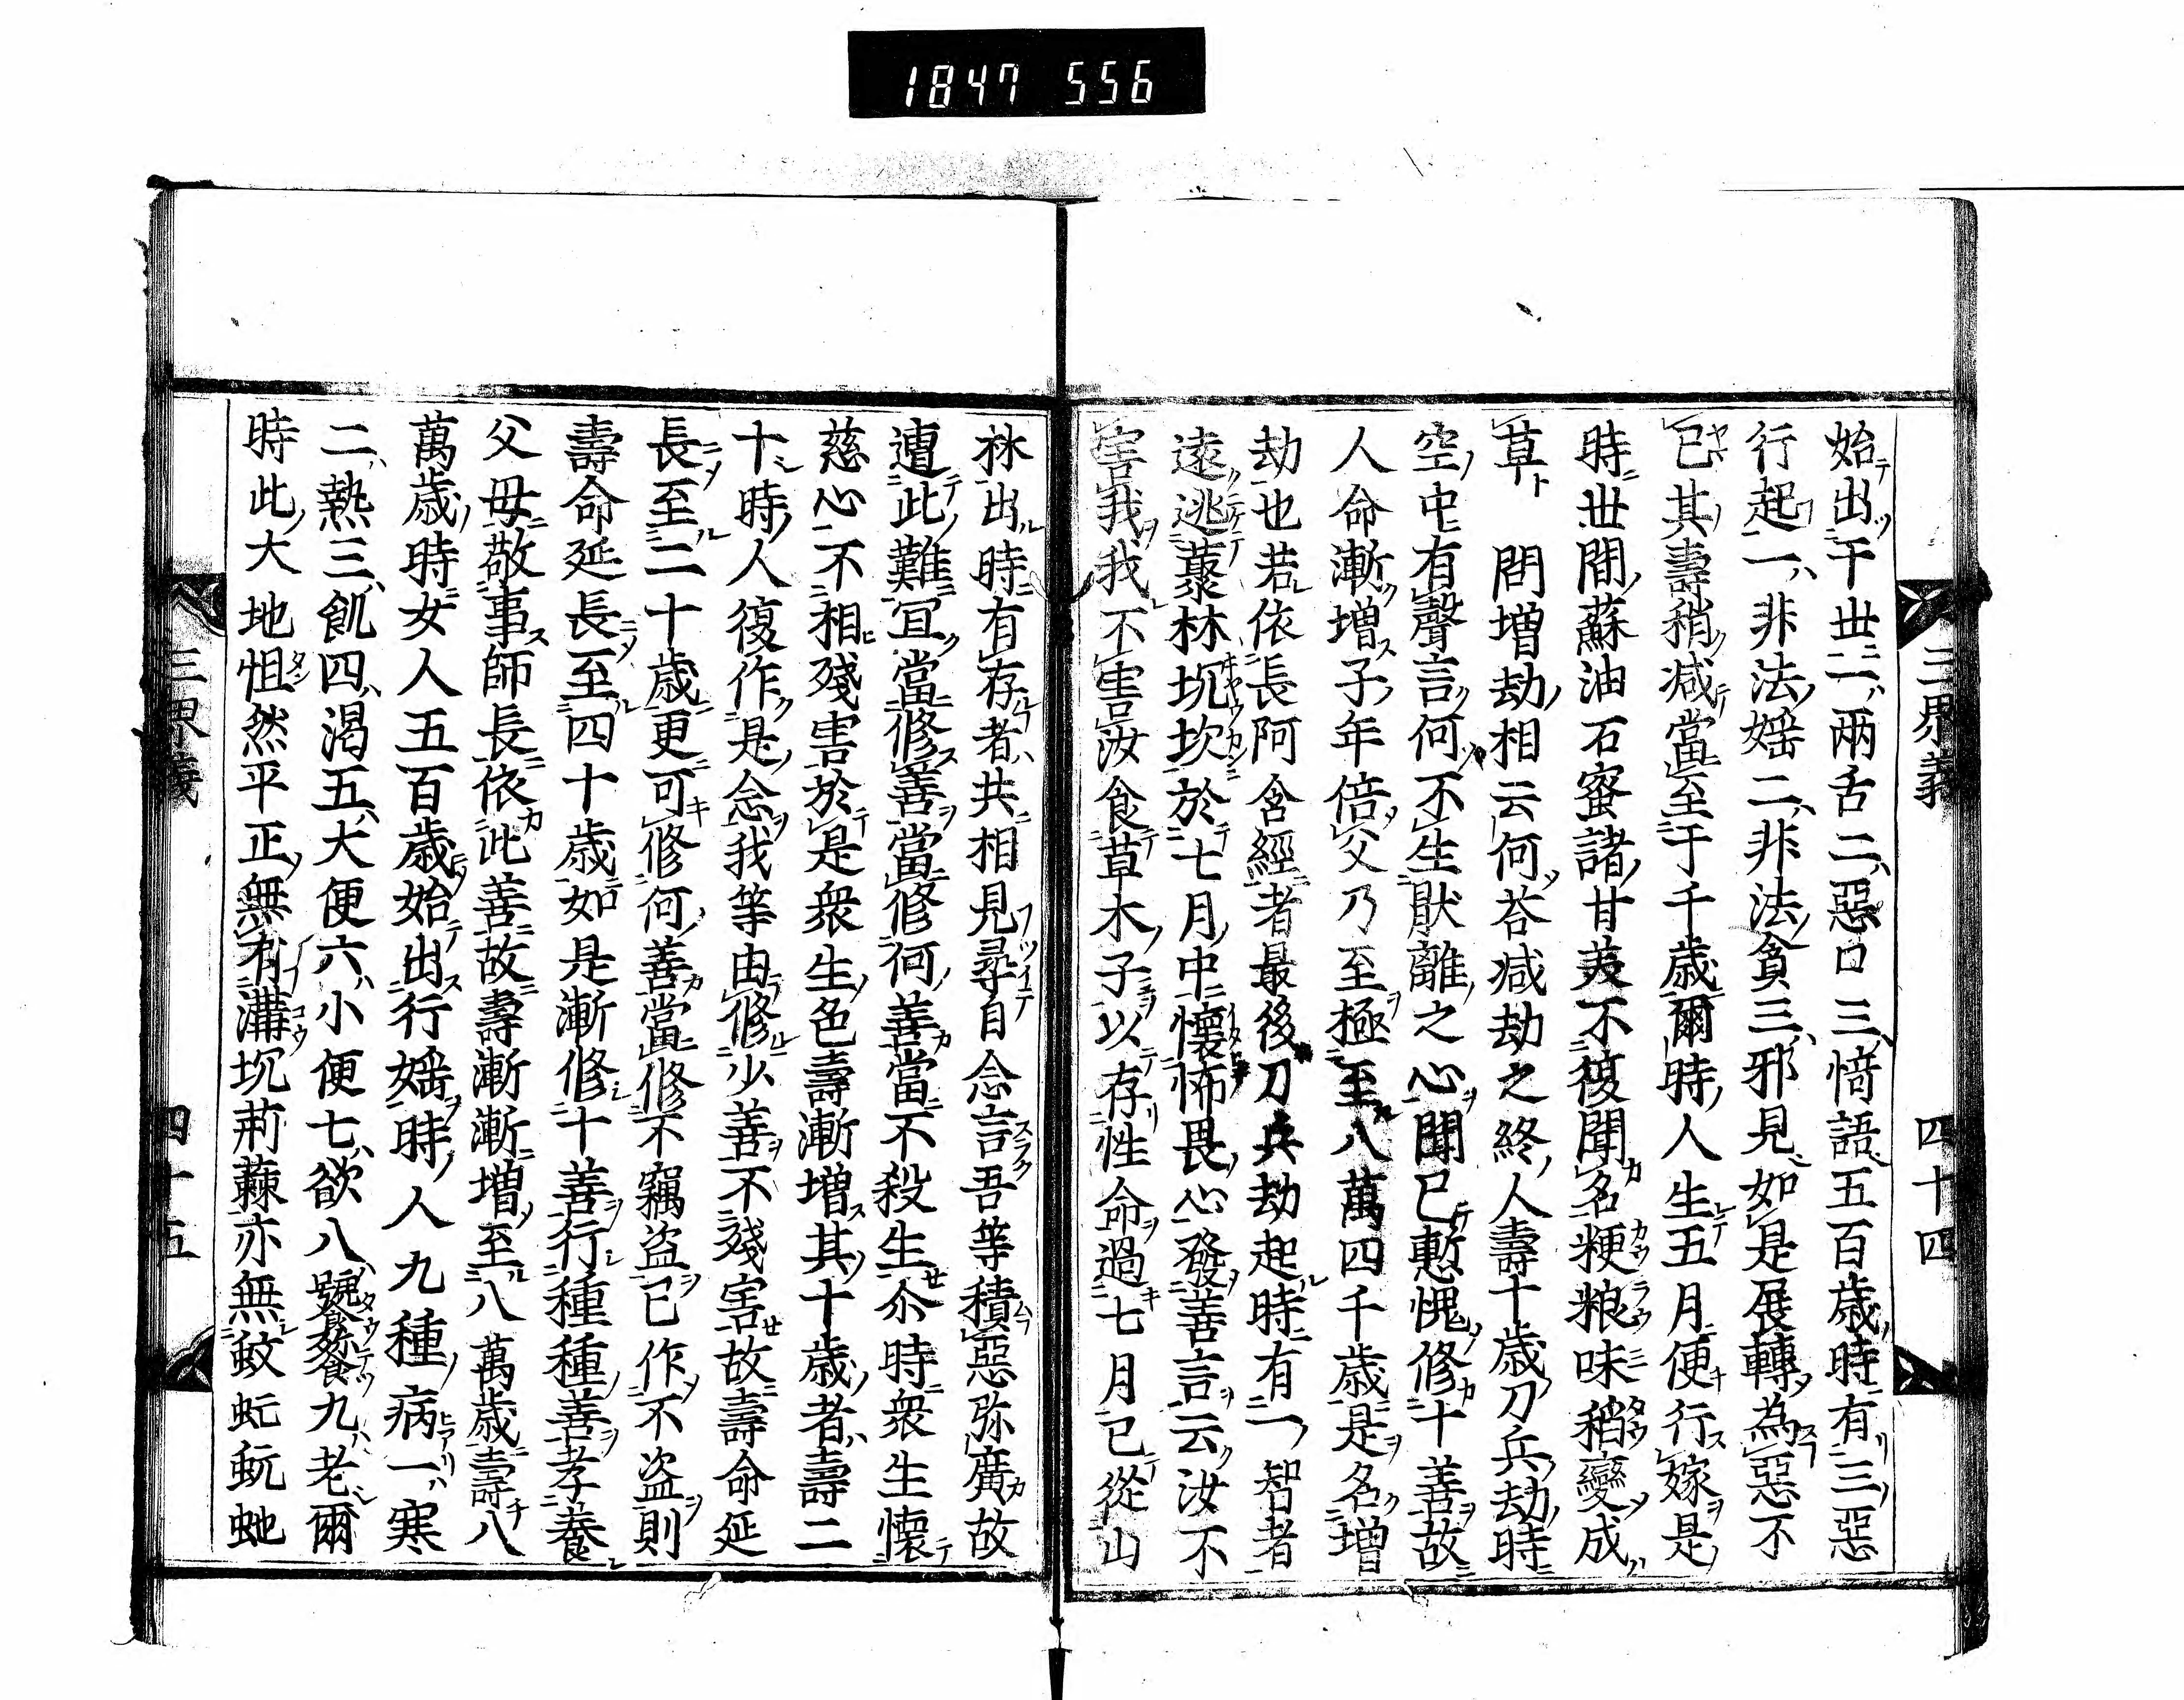 1847 556
三界義 四十四
始出于世一兩舌二惡口三愔語五百歳時有三惡
行起一非法婬二非法貪三邪見如是展轉為惡不
已其壽稍减當至于千歳爾時人生五月便行嫁是
時世間蘇油石蜜諸甘羙不復聞名粳粮味稻變成
草ト 問増劫相云何荅减劫之終人壽十歳刀兵劫時
空中有聲言何不生猒離之心聞已慙愧修十善故
人命漸増子年倍父乃至極至八萬四千歳是名増
劫也若依長阿含經者最後刀兵劫起時有一智者
遠逃藂林坑坎於七月中懷怖畏心發善言云汝不
害我我不害汝食草木子以存性命過七月已從山
林出時有存者共相見尋自念言吾等積惡弥廣故
遭此難冝當修善當修何善當不殺生尒時衆生懷
慈心不相殘害於是衆生色壽漸増其十歳者壽二
十時人復作是念我等由修少善不殘害故壽命延
長至二十歳更可修何善當修不竊盗已作不盗則
壽命延長至四十歳如是漸修十善行種種善孝養
父母敬事師長依此善故壽漸漸増至八萬歳壽八
萬歳時女人五百歳始出行婬時人九種病一寒
二熱三飢四渴五大便六小便七欲八饕餮九老爾
時此大地怛然平正無有溝坑荊蕀亦無蚊虻蚖虵
三界義 四十五